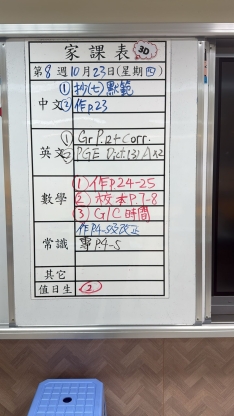 家課表 30
第8週10月23日(星期四)
中文
① 抄(七)默範
② 作P.23
英文
① Gr P.12+Corr.
② PGE Dict.(3)A×2
數學
① 作P.24-25
② 校本P.7-8
③ G/C 時間
常識
作P.4-5及改正
專P.4-5
其它
值日生 ②